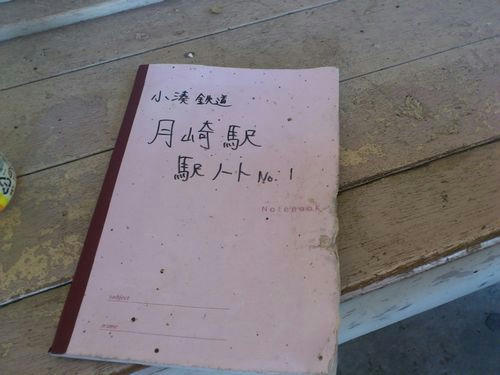 小湊鉄道
月崎駅
駅ノート No.1
Notebook
subject
name